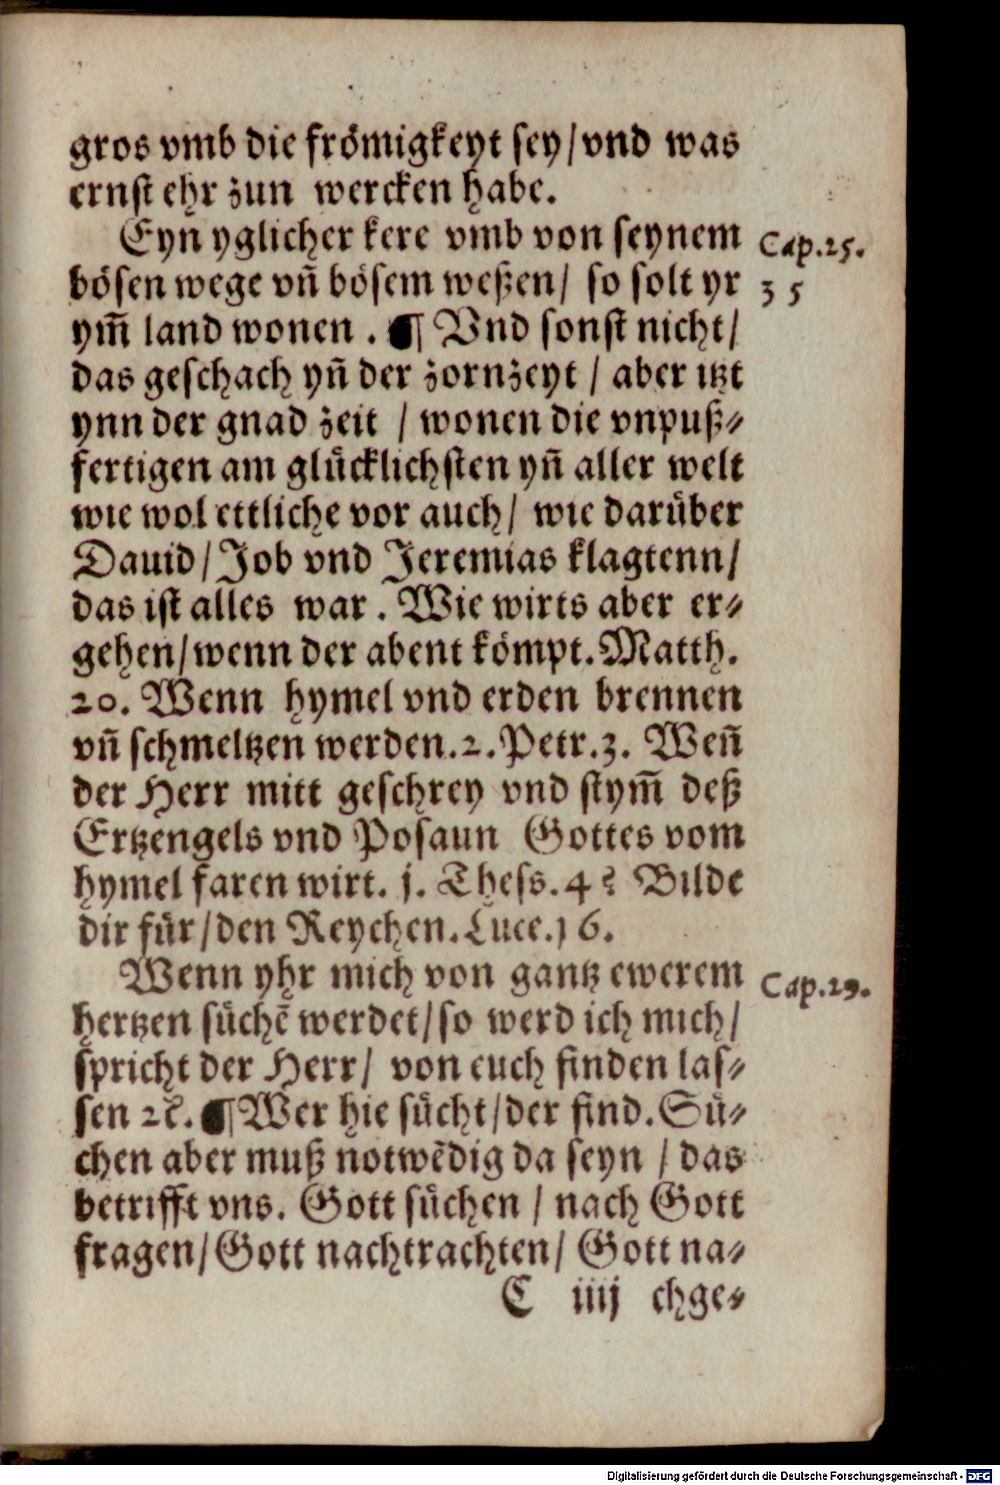 gros vmb die frömigkeyt sey/vnd was
ernst ehr zun wercken habe.
Eyn yglicher kere vmb von seynem
Cap.25.
bösen wege vñ bösem weßen/ so solt yr
35
ym̃ land wonen . ¶ Vnd sonst nicht/
das geschach yñ der zornzeyt / aber itzt
ynn der gnad zeit / wonen die vnpuß⸗
fertigen am glücklichsten yñ aller welt
wie wol ettliche vor auch/ wie darüber
Dauid/Job vnd Jeremias klagtenn/
das ist alles war . Wie wirts aber er⸗
gehen/wenn der abent kömpt.Matth.
20. Wenn hymel vnd erden brennen
vñ schmeltzen werden.2.Petr.3. Weñ
der Herr mitt geschrey vnd stym̃ deß
Ertzengels vnd Posaun Gottes vom
hymel faren wirt. j. Thess.4? Bilde
dir für/den Reychen.Luce.16.
Wenn yhr mich von gantz ewerem
Cap.29.
hertzen süchẽ werdet/so werd ich mich/
spricht der Herr/ von euch finden las⸗
sen ꝛc̃. ¶ Wer hie sücht/der find.Sü⸗
chen aber muß notwẽdig da seyn / das
betrifft vns. Gott süchen / nach Gott
fragen/Gott nachtrachten/ Gott na⸗
C iiij chge⸗
Digitalisierung gefördert durch die Deutsche Forschungsgemeinschaft - DFG